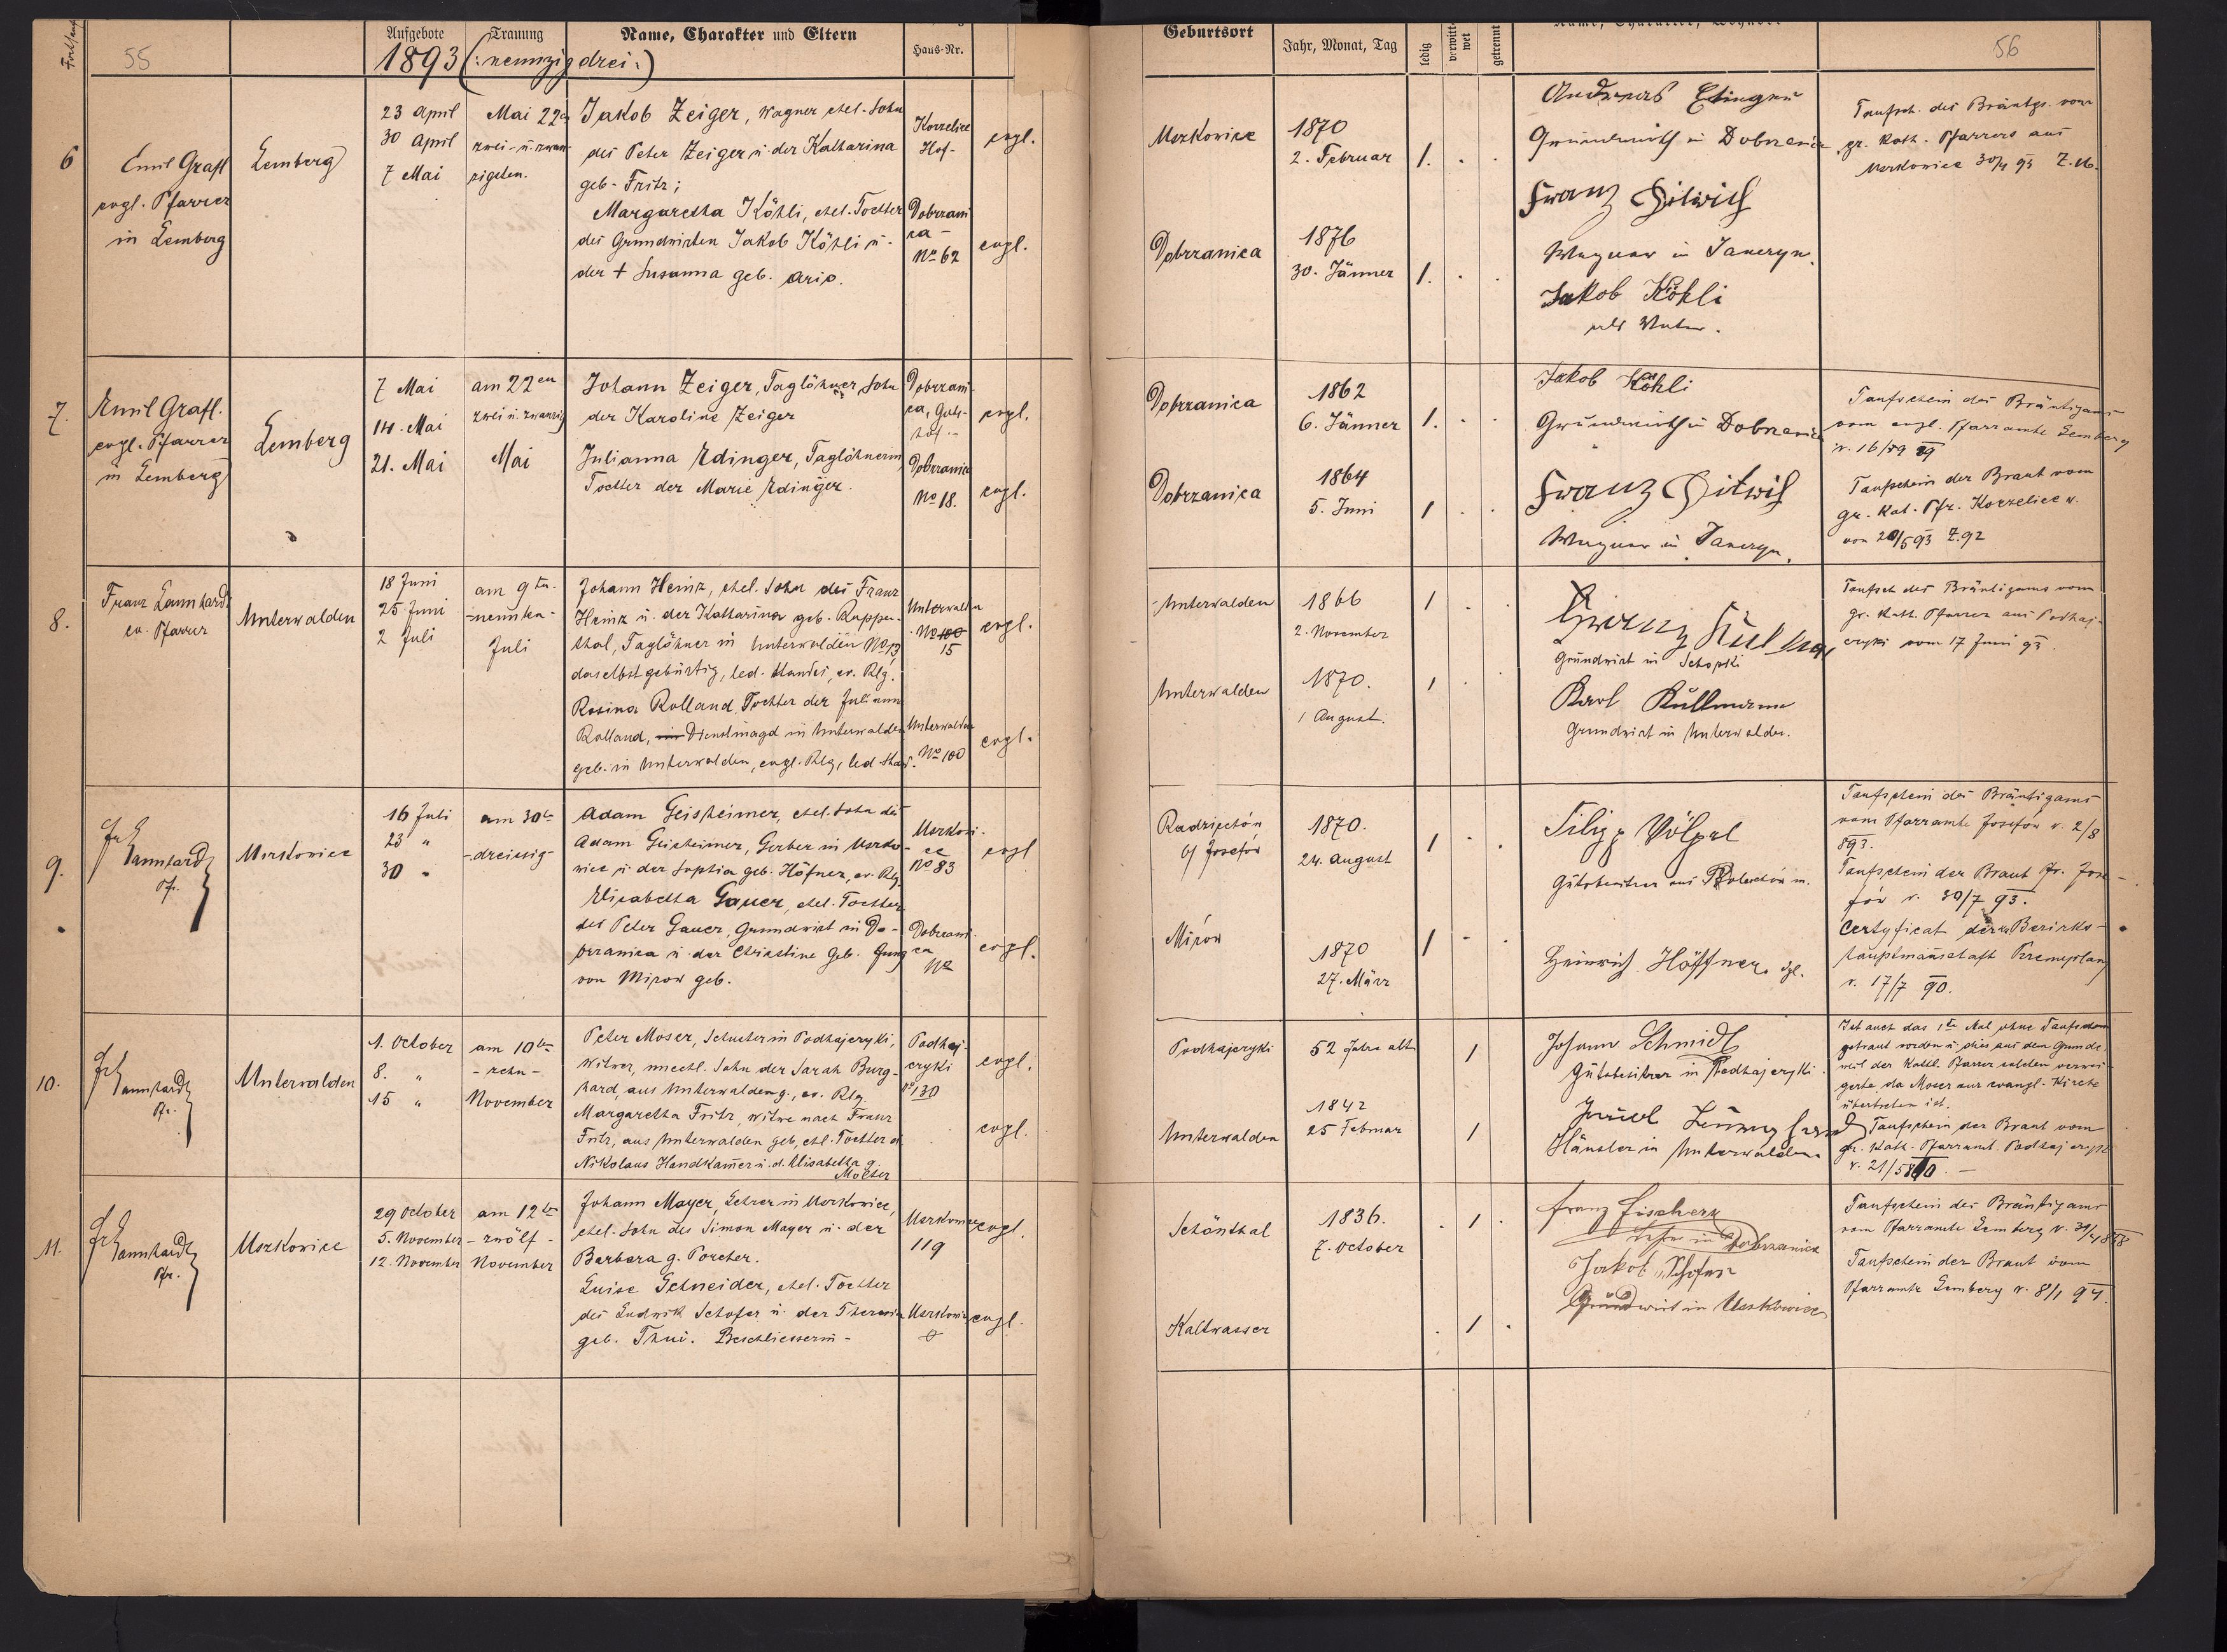 55
Aufgebote
Trauung
Name, Charakter und Eltern
Haus-Nr.
1893 (: neunzig drei :)
6
Emil Grafl
evgl. Pfarrer
in Lemberg
Lemberg
23 April
30 April
7 Mai
Mai 22
zwei- u. zwan
zigsten.
Jakob Zeiger, Wagner ehel. Sohn
des Peter Zeiger u. der Katharina
geb. Fritz;
Margaretha Köhli, ehel. Tochter
des Grundwirten Jakob Köhli u.
der + Susanna geb.
Korzelice
Hof-
Dobrzani
ca -
No 62
evgl.
evgl.
7.
Emil Grafl.
evgl. Pfarrer
in Lemberg
Lemberg
7 Mai
14. Mai
21. Mai
am 22en
zwei u. zwanzig
Mai
Johann Zeiger, Taglöhner, Sohn
der Karoline Zeiger
Julianna Edinger, Taglöhnerin
Tochter der Marie Edinger.
Dobrzani
ca, Guts-
hof.-
Dobrzanica
No 18.
evgl.
evgl.
8.
Franz Lannhardt
ev. Pfarrer
Unterwalden
18 Juni
25 Juni
2 Juli
am 9ten
-neunten-
Juli
Johann Heinz, ehel. Sohn des Franz
Heinz u. der Katharina geb. Rappen-
thal, Taglöhner in Unterwalden No 15
daselbst gebürtig, led. Standes, ev. Rlg.
Rosina Rolland, Tochter der Julianna
Rolland, Dienstmagd in Unterwalden
geb. in Unterwalden, evgl. Rlg, led. Stand.
Unterwalden
No 100
15
Unterwalden
No 100
evgl.
evgl.
9.
Lannhardt
Pfr.
Uszkowice
16 Juli
23 "
30 "
am 30te
-dreissig-
Adam Geisheimer, ehel. Sohn des
Adam Geisheimer, Gerber in Uszko-
wice u. der Sophia geb. Höfner, ev. Rlg.
Elisabetha Gauer, ehel. Tochter
des Peter Gauer, Grundwirt in Do-
brzanica u. der Christine geb. Jung
von Mirow geb.
Uszkowi-
ce
No 83
Dobrzani
ca
No
evgl
evgl.
10.
Lannhardt
Pfr.
Unterwalden
1. October
8. "
15 "
am 10ten
- zehn -
November
Peter Moser, Schuster in Podhajczyki,
Witwer, unehl. Sohn der Sarah Burg-
hard, aus Unterwalden g., ev. Rlg.
Margaretha Fritz, Witwe nach Franz
Fritz, aus Unterwalden geb, ehl. Tochter d.
Nikolaus Handkamer u. d. Elisabetha g.
Molter
Podhaj-
czyki
No 130
evgl.
evgl.
11.
Lannhardt
Pfr.
Uszkowice
29 October
5. November
12. November
am 12te
- zwölf -
November
Johann Mayer, Lehrer in Uszkowice,
ehel. Sohn des Simon Mayer u. der
Barbara g. Porcher.
Luise Schneider, ehel. Tochter
des Ludwik Schofer u. der Theresia
geb. Thui. Beschliesserin -
Uszkowice
119
Uszkowice
evgl.
evgl.
56
Geburtsort
Jahr, Monat, Tag
ledig
verwitt-
wet
getrennt
Name, Charakter, Wohnort
Uszkowice
1870
2. Februar
1.
Andreas Etinger
Grundwirth in Dobrzanica
Franz Hitwich
Wagner in Janczyn.
Jakob Köhli
als Vater.
Taufsch. des Bräutgs. vom
gr. kath. Pfarrers aus
Uszkowice 30/4 93 Z. 16.
Dobrzanica
1876
30. Jänner
1.
Dobrzanica
1862
6. Jänner
1.
Jakob Köhli
Grundwirth in Dobrzanica
Franz Hitwich
Wagner in Janczyn.
Taufschein des Bräutigams
vom evgl. Pfarramte Lemberg
v. 16/
Taufschein der Braut vom
gr. Kat. Pfr. Korzelice v.
von 20/5 93 Z. 92
Dobrzanica
1864
5. Juni
1
Unterwalden
1866
2. November
1
Grundwirt in
Karl Kullmann
Grundwirt in Unterwalden.
Taufsch des Bräutigams vom
gr. kath. Pfarrer aus Podhaj-
czyki vom 17 Juni 93.
Unterwalden
1870.
1 August.
1
Radziechów
b/ Josefów
1870.
24. August
1
Filipp Völpel
Gutsbesitzer aus
Heinrich Höffner
Taufschein des Bräutigams
vom Pfarramte Josefów v. 2/8
893.
Taufschein der Braut Pr. Jose-
fów v. 30/7 93.
Certyficat der k. Bezirks-
hauptmanschaft Przemyslany
v. 17/7 90.
Mirow
1870
27. März
1
Podhajczyki
52 Jahre alt
1
Johann Schmidt
Gutsbesitzer in Podhajczyki
Häusler in Unterwalden
Ist auch das 1te Mal ohne Taufschein
getraut worden u. dies aus dem Grunde
weil der Kathl. Pfarrer solchen verwei-
gerte da Moser zur evangl. Kirche
übertreten ist.
Taufschein der Braut vom
gr. kath. Pfarramt Podhajczyki
v. 21/5
Unterwalden
1842
25 Februar
1
Schönthal
1836.
7. October
1
Franz Fischer
Lehrer in Dobrzanica
Jakob Schofer
Grundwirt in Uszkowice
Taufschein des Bräutigams
vom Pfarramte Lemberg v.
Taufschein der Braut vom
Pfarramte Lemberg v. 8/1 94.
Kaltwasser
1